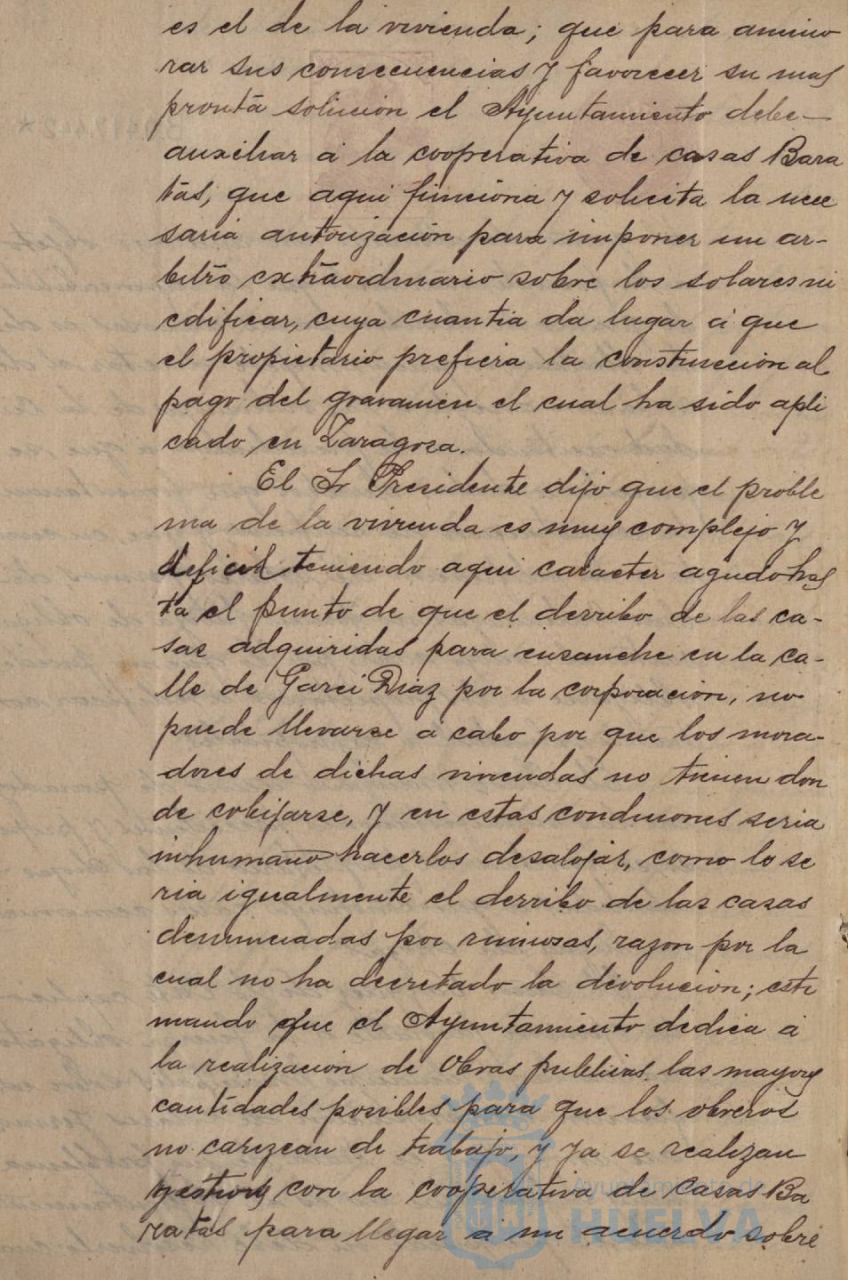 es el de la vivienda; que para amino
rar sus consecuencias y favorecer su mas
pronta solución el Ayuntamiento debe—
auxiliar á la cooperativa de casas Bara
tas, que aqui funciona y solicita la nece
saria autorización para imponer un ar-
bitro extraordinario sobre los solares ni
edificar, cuya cuantia da lugar á que
el propietario prefiera la construccion al
pago del gravamen el cual ha sido apli
cado en Zaragoza.
El Sr Presidente dijo que el proble
ma de la vivienda es muy complejo y
dificil teniendo aqui caracter agudo has
ta el punto de que el derribo de las ca-
sas adquiridas para ensanche en la ca-
lle de Garci Diaz por la corporación, no
puede llevarse a cabo por que los mora-
dores de dichas viviendas no tienen don
de cobijarse, y en estas condiciones seria
inhumano hacerlos desalojar, como lo se
ria igualmente el derribo de las casas
denunciadas por ruinosas, razon por la
cual no ha decretado la devolucion; esti
mando que el Ayuntamiento dedica á
la realización de obras publicas las mayores
cantidades posibles para que los obreros
no carezcan de trabajo, y ya se realizan
gestiones con la cooperativa de casas Ba
ratas para llegar á un acuerdo sobre
Ayuntamiento de
HUELVA